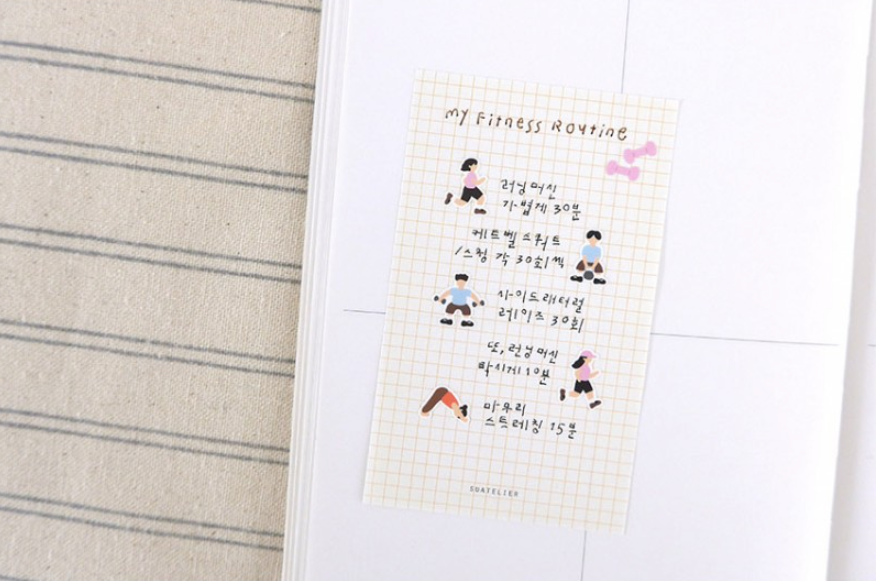 my Fitness Routine
러닝머신
가볍게 30분
케틀벨 스쿼트
/스윙 각 30회씩
사이드래터럴
레이즈 30회
또, 런닝머신
빡시게 10분
마무리
스트레칭 15분
SUATELIER